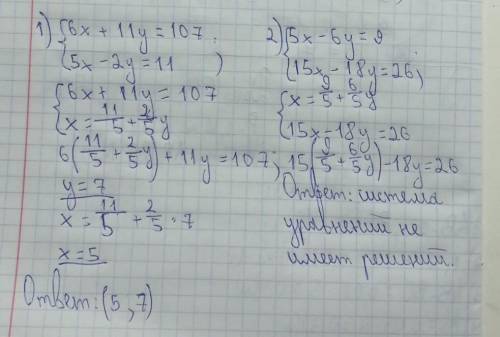 1) {6x + 11y = 107
{5x - 2y = 11
{6x + 11y = 107
{x = 11/5 + 2/5 y
6(11/5 + 2/5 y) + 11y = 107;
y = 7
x = 11/5 + 2/5 · 7
x = 5
Ответ: (5, 7)
2) {5x - 6y = 9
{15x - 18y = 26;
{x = 9/5 + 6/5 y
{15x - 18y = 26
15(9/5 + 6/5 y) - 18y = 26
Ответ: система
уравнений не
имеет решений.